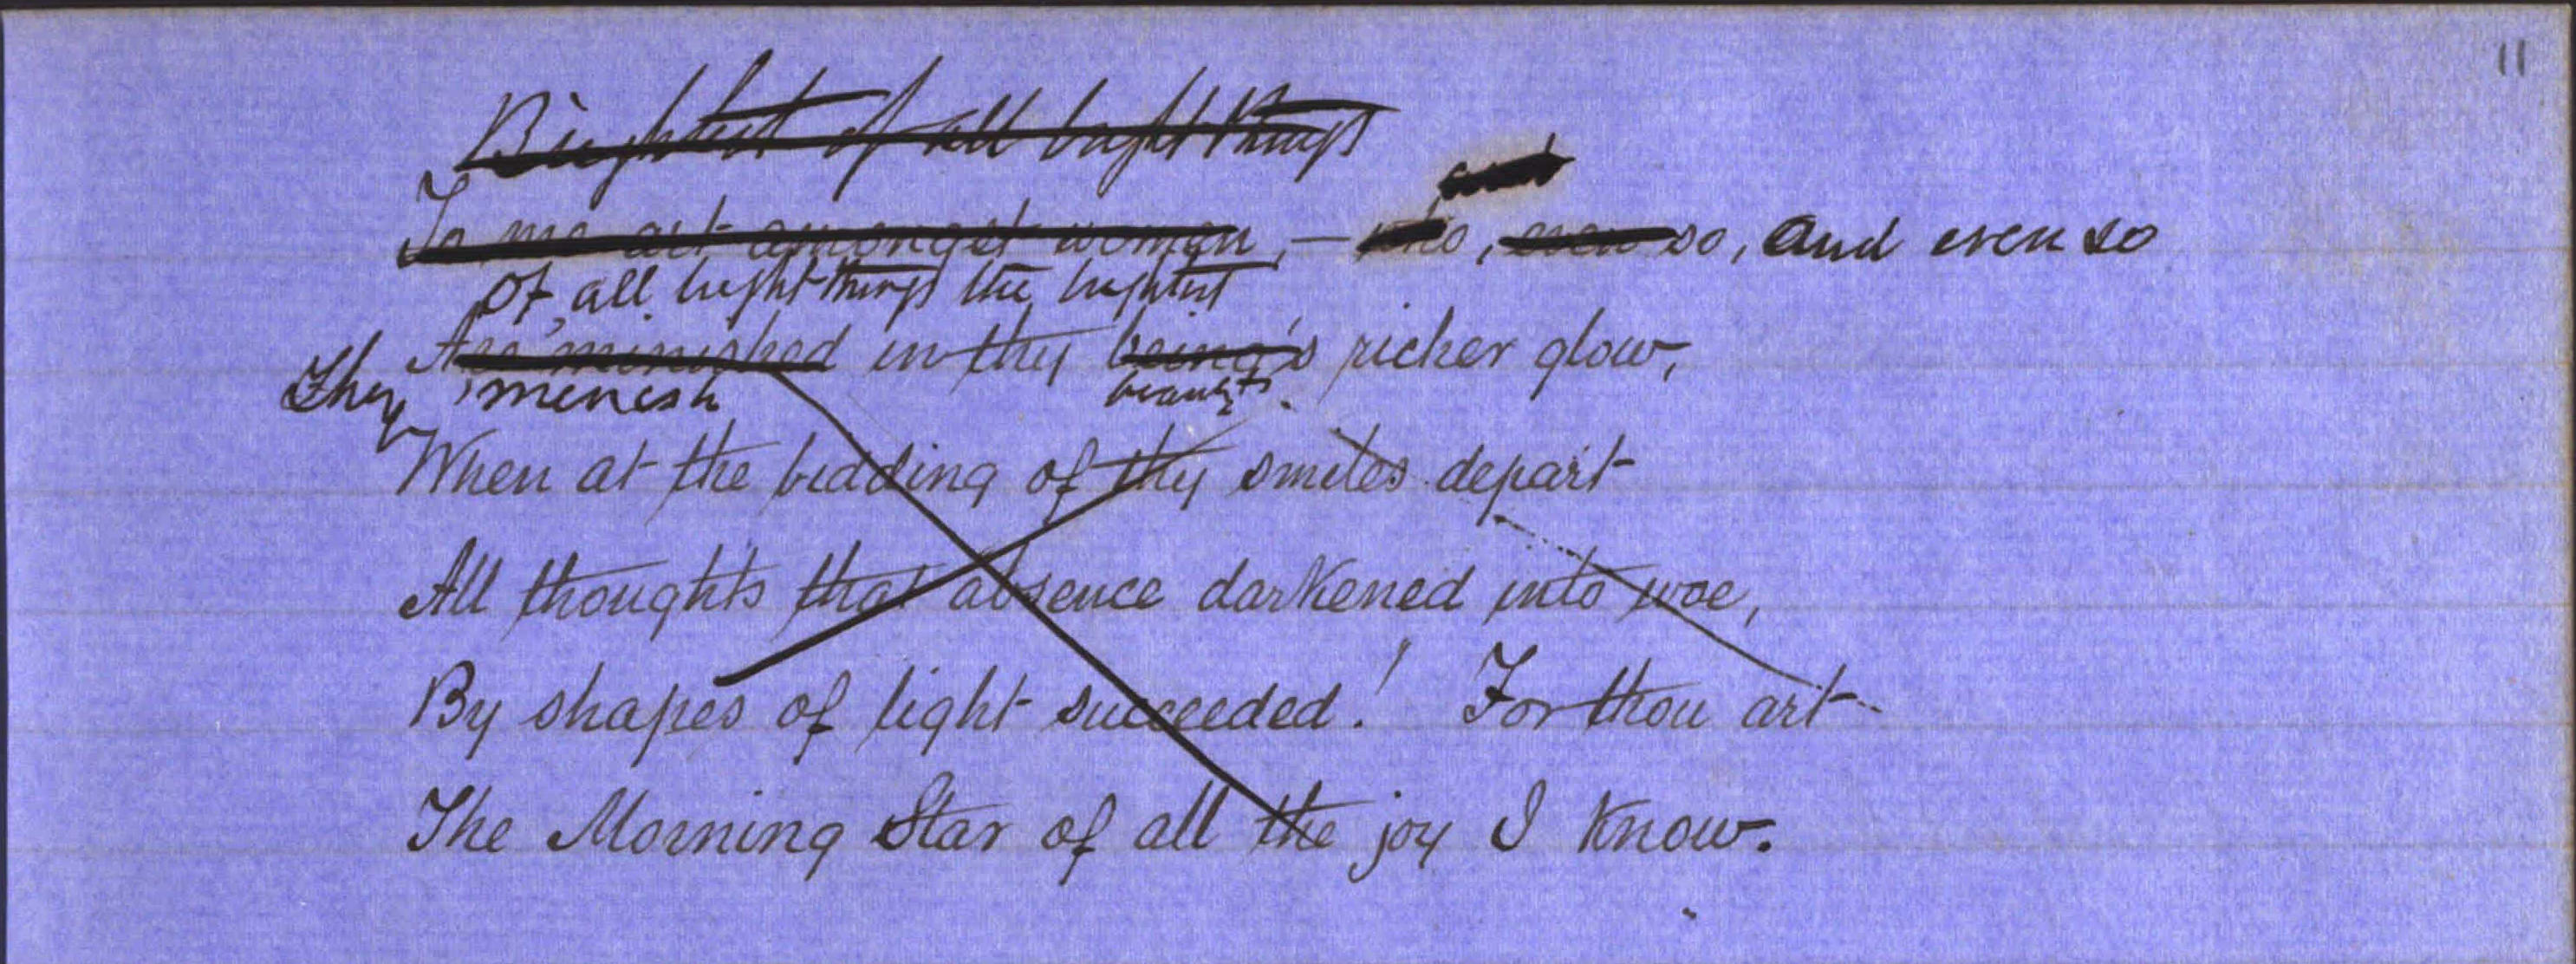 11
Brightest of all bright things
To me art amongst women, — so, even so, and even so
Of all bright things the brightest
Are minished in thy being's richer glow,
They minish beauty's
When at the bidding of thy smiles depart
All thoughts that absence darkened into woe,
By shapes of light succeeded! For thou art
The Morning Star of all the joy I know.